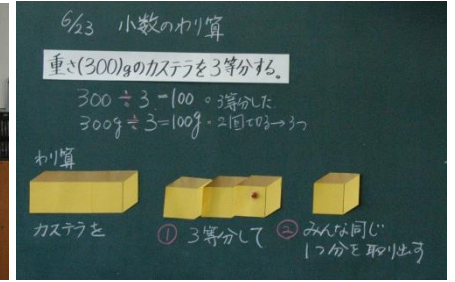 6/23 小数のわり算
重さ(300)gのカステラを3等分する。
300÷3=100 ・3等分した
300g÷3=100g ・2回で切る→3つ
わり算
カステラを
① 3等分して
② みんな同じ
1つ分を取り出す